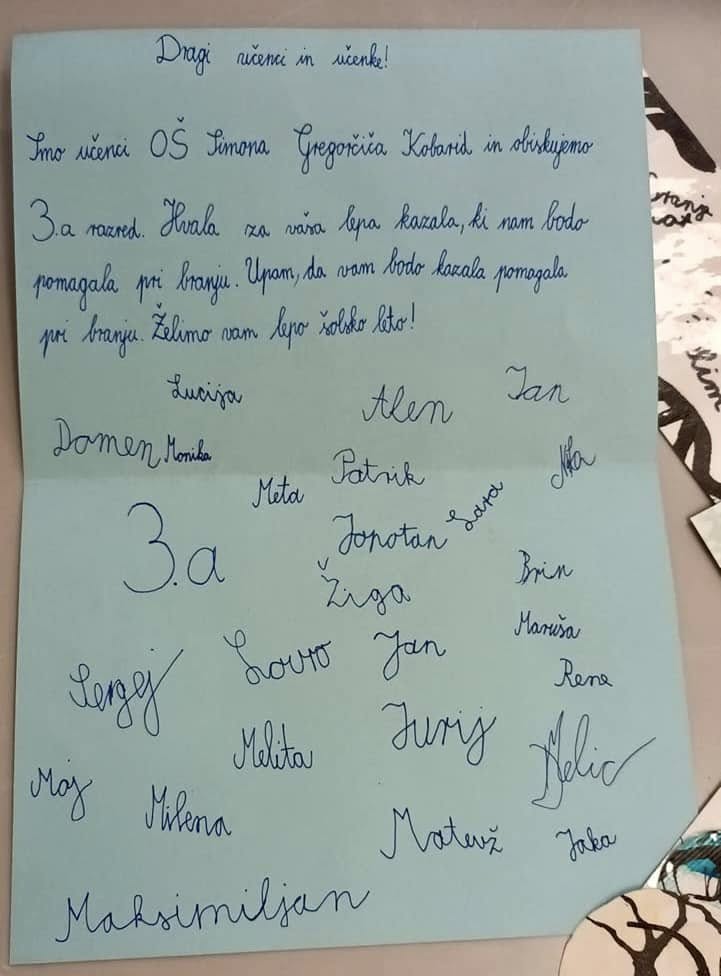 Dragi učenci in učenke!
Smo učenci OŠ Simona Gregorčiča Kobarid in obiskujemo
3.a razred. Hvala za vaša lepa kazala, ki nam bodo
pomagala pri branju. Upam, da vam bodo kazala pomagala
pri branju. Želimo vam lepo šolsko leto!
Lucija Alen Jan
Domen Monika
Meta Patrik
3.a Jonotan Lara
Žiga Brin
Maruša
Sergej Lovro Jan
Rene
Melita Jurij
Maj Milena
Matevž Jaka
Maksimiljan